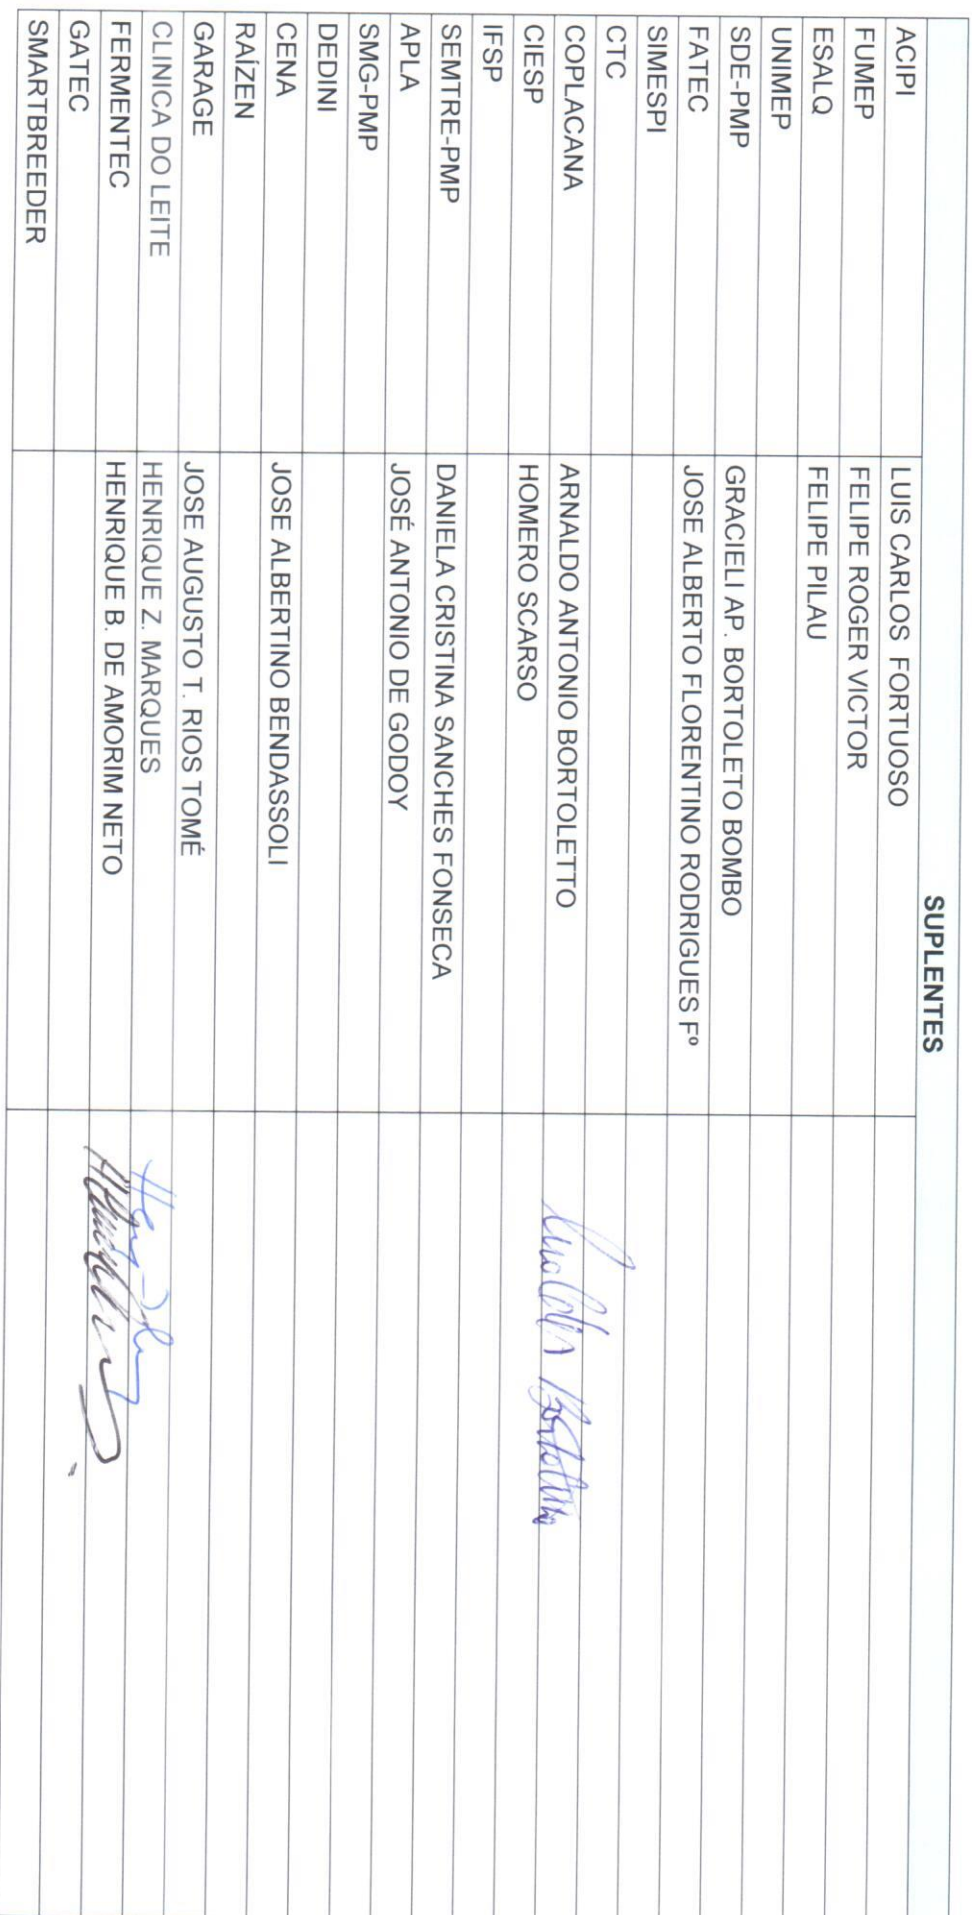 SUPLENTES
ACIPI LUIS CARLOS FORTUOSO
FUMEP FELIPE ROGER VICTOR
ESALQ FELIPE PILAU
UNIMEP
SDE-PMP GRACIELI AP. BORTOLETO BOMBO
FATEC JOSE ALBERTO FLORENTINO RODRIGUES Fº
SIMESPI
CTC
COPLACANA ARNALDO ANTONIO BORTOLETTO
CIESP HOMERO SCARSO
IFSP
SEMTRE-PMP DANIELA CRISTINA SANCHES FONSECA
APLA JOSÉ ANTONIO DE GODOY
SMG-PMP
DEDINI
CENA JOSE ALBERTINO BENDASSOLI
RAÍZEN
GARAGE JOSE AUGUSTO T. RIOS TOMÉ
CLINICA DO LEITE HENRIQUE Z. MARQUES
FERMENTEC HENRIQUE B. DE AMORIM NETO
GATEC
SMARTBREEDER